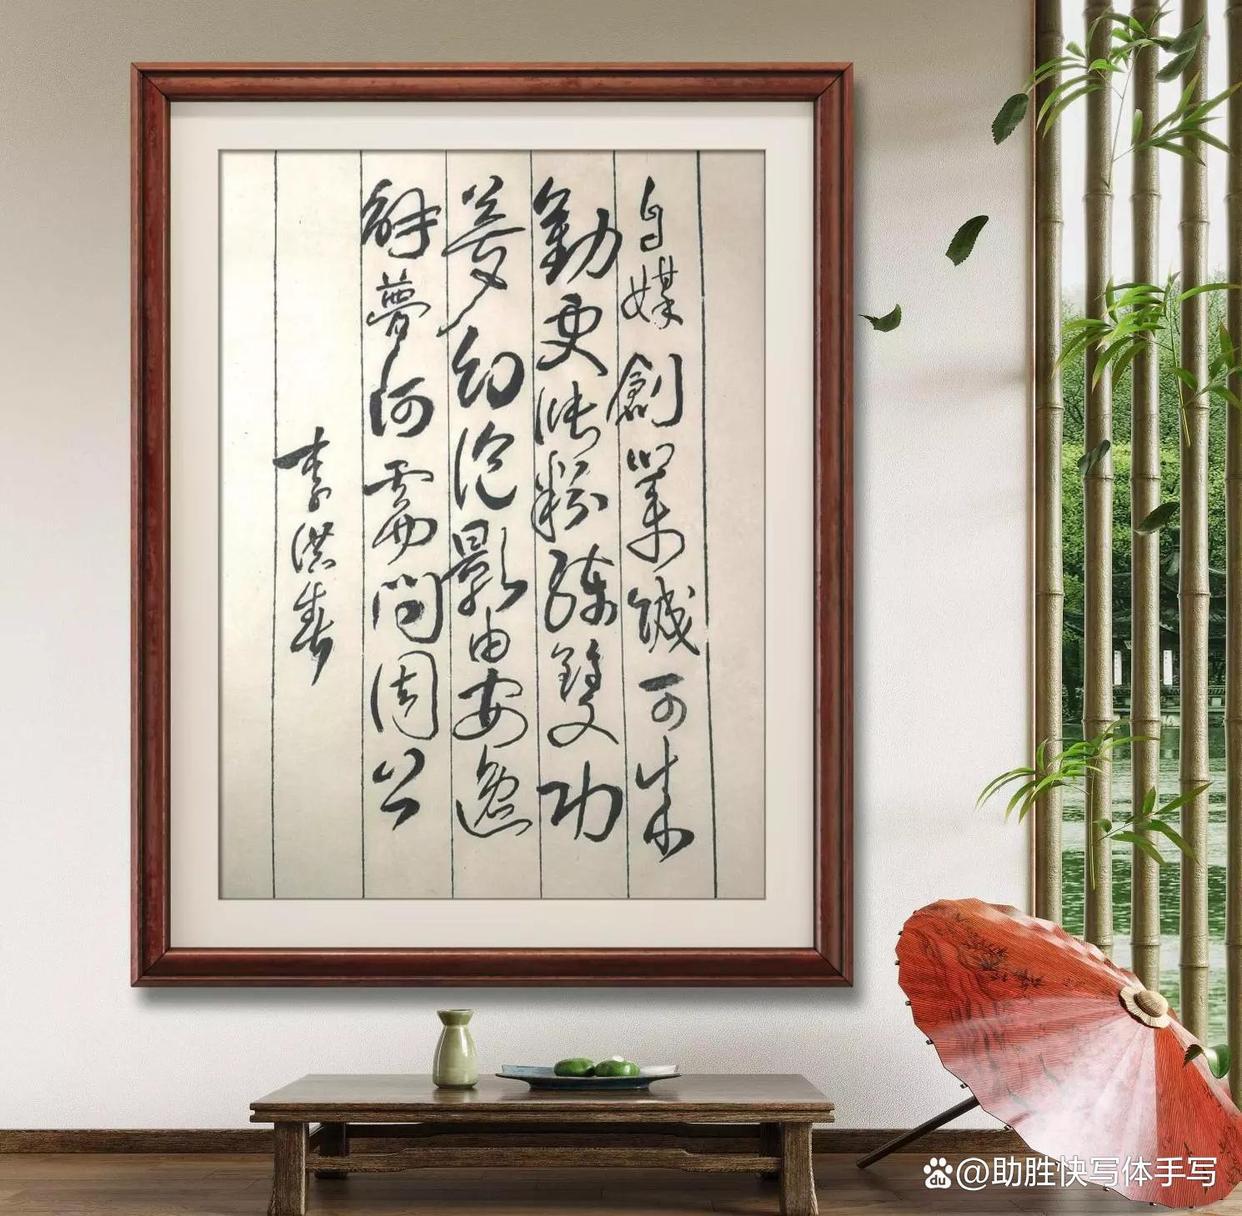 自媒創業誠可樂
勤更漲粉練雙功
夢幻泡影由安逸
解夢何需問周公
李洪春
@助胜快写体手写